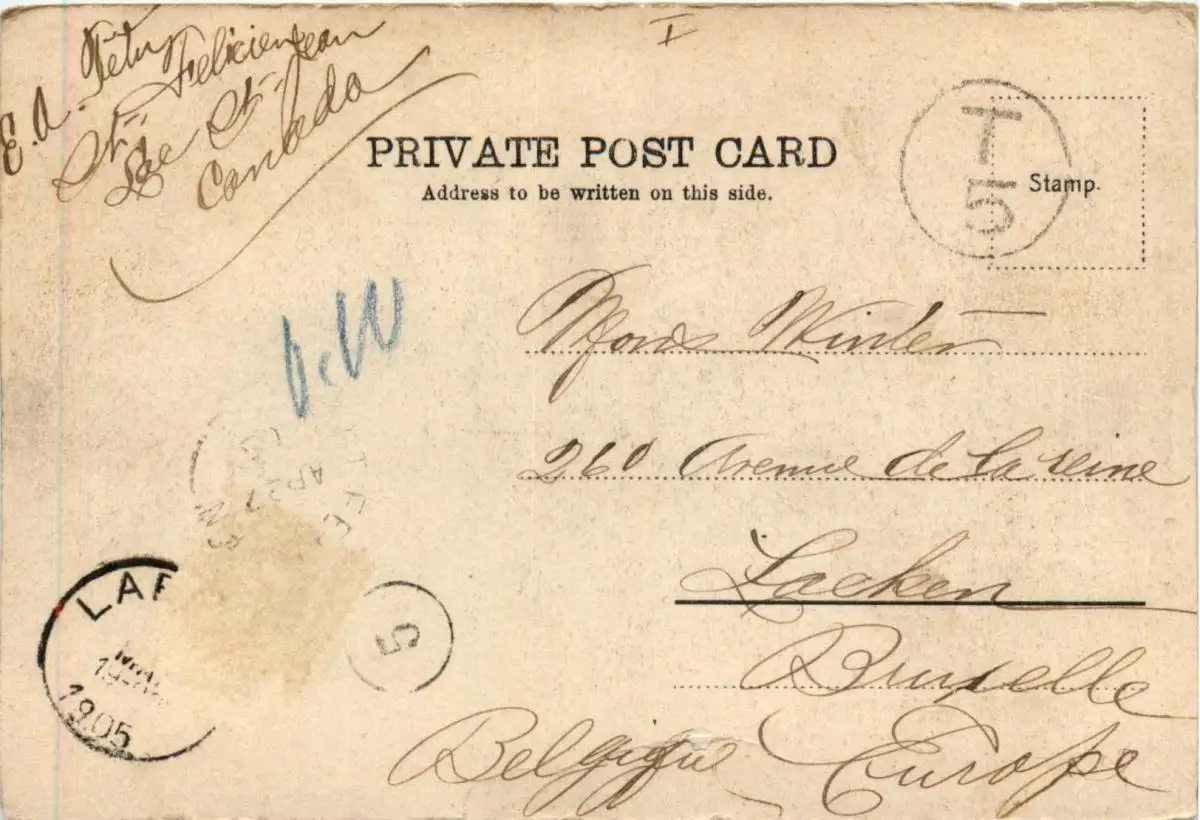 E.A. Tetu
St. Felicien
Lac St. Jean
Canada
I
PRIVATE POST CARD
Address to be written on this side.
T
5
Stamp.
Mons Winter
260 Avenue de la reine
Laeken
Bruxelle
Belgique Europe
AP 27
LAE
1905
5